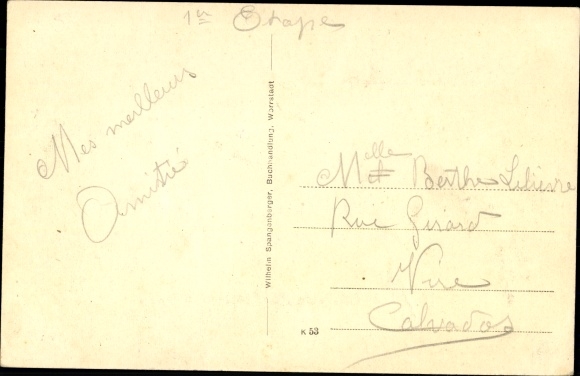 1re Etape
Mes meilleurs
Amitié
Wilhelm Spangenberger, Buchhandlung, Wörrstadt
Melle Berthe Lelièvre
Rue Girard
Vire
Calvados
K 53